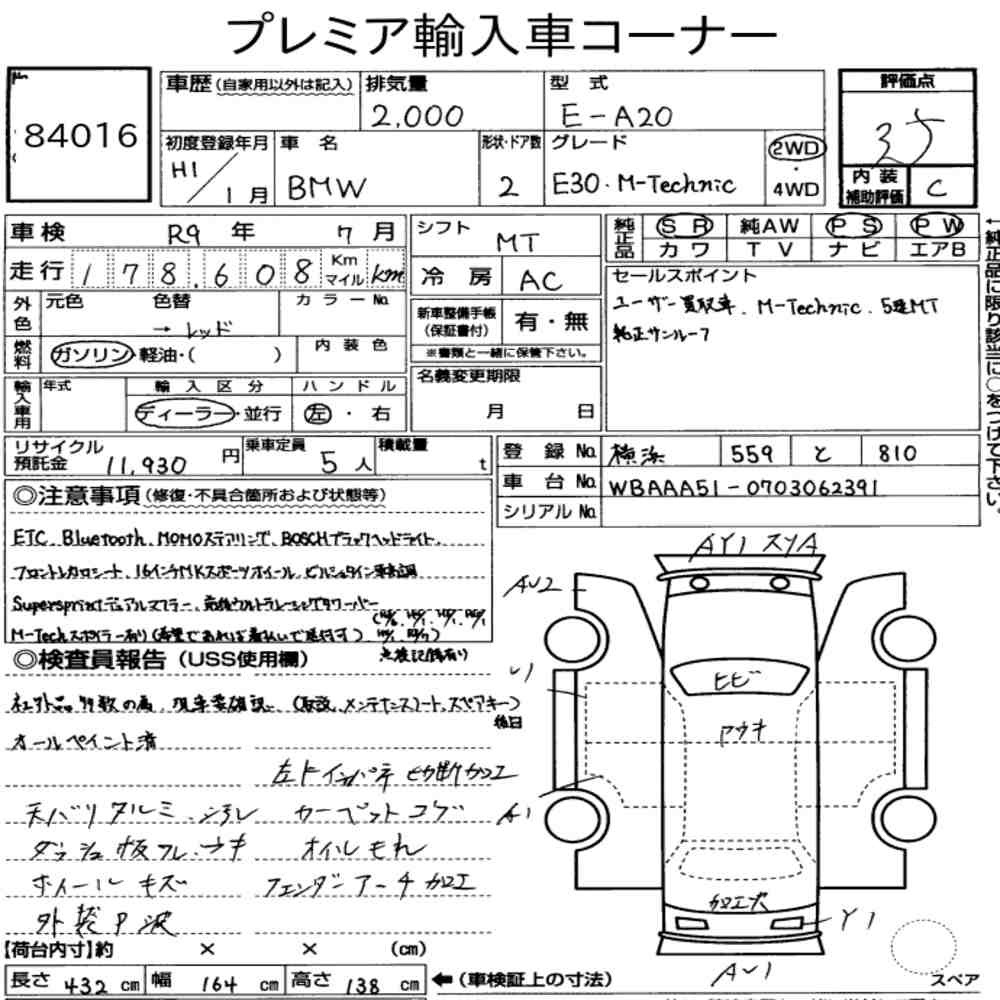 プレミア輸入車コーナー
84016
車歴 (自家用以外は記入) 排気量 型式 評価点
2,000 E-A20 35
初度登録年月 車名 形状・ドア数 グレード 2WD・4WD
H1/1月 BMW 2 E30・M-Technic
内装補助評価 C
車検 R9年 7月 シフト MT
純正品 SR 純AW PS PW
カワ TV ナビ エアB
走行 178,608 Km マイル km 冷房 AC
セールスポイント
ユーザー買取車、M-Technic、5速MT
純正サンルーフ
外色 元色 色替 カラーNo.
→ レッド
新車整備手帳(保証書付) 有・無
※書類と一緒に保管下さい。
燃料 ガソリン・軽油・( ) 内装色
名義変更期限
月 日
輸入車用 年式 輸入区分 ハンドル
ディーラー・並行 左・右
←純正品に限り該当に○をつけて下さい。
リサイクル預託金 11,930円 乗車定員 5人 積載量 t
登録No. 横浜 559 と 810
車台No. WBAAA51-0703062391
シリアルNo.
◎注意事項(修復・不具合箇所および状態等)
ETC、Bluetooth、MOMOステアリング、BOSCHブラックヘッドライト、
フロントレカロシート、16インチMKスポーツホイール、ビルシュタイン車高調
Supersprintデュアルマフラー、前後ウルトラレーシングタワーバー
M-Techスポイラー有り(希望であれば着払いで送付可)
点検記録有り
◎検査員報告(USS使用欄)
社外品多数の為、現車要確認 (取説、メンテナンスノート、スペアキー)
後日
オールペイント済
左ドインパネ 切断加工
天バリタルミ、汚レ カーペットコゲ
ダッシュ板フレ・ウキ オイルもれ
ホイールキズ フェンダーアーチ加工
外装P波
AY1 スリA
AU2
U1
ヒビ
アウキ
A1
加工穴
Y1
AU1
スペア
【荷台内寸】約 × × (cm)
長さ 432 cm 幅 164 cm 高さ 138 cm ←(車検証上の寸法)